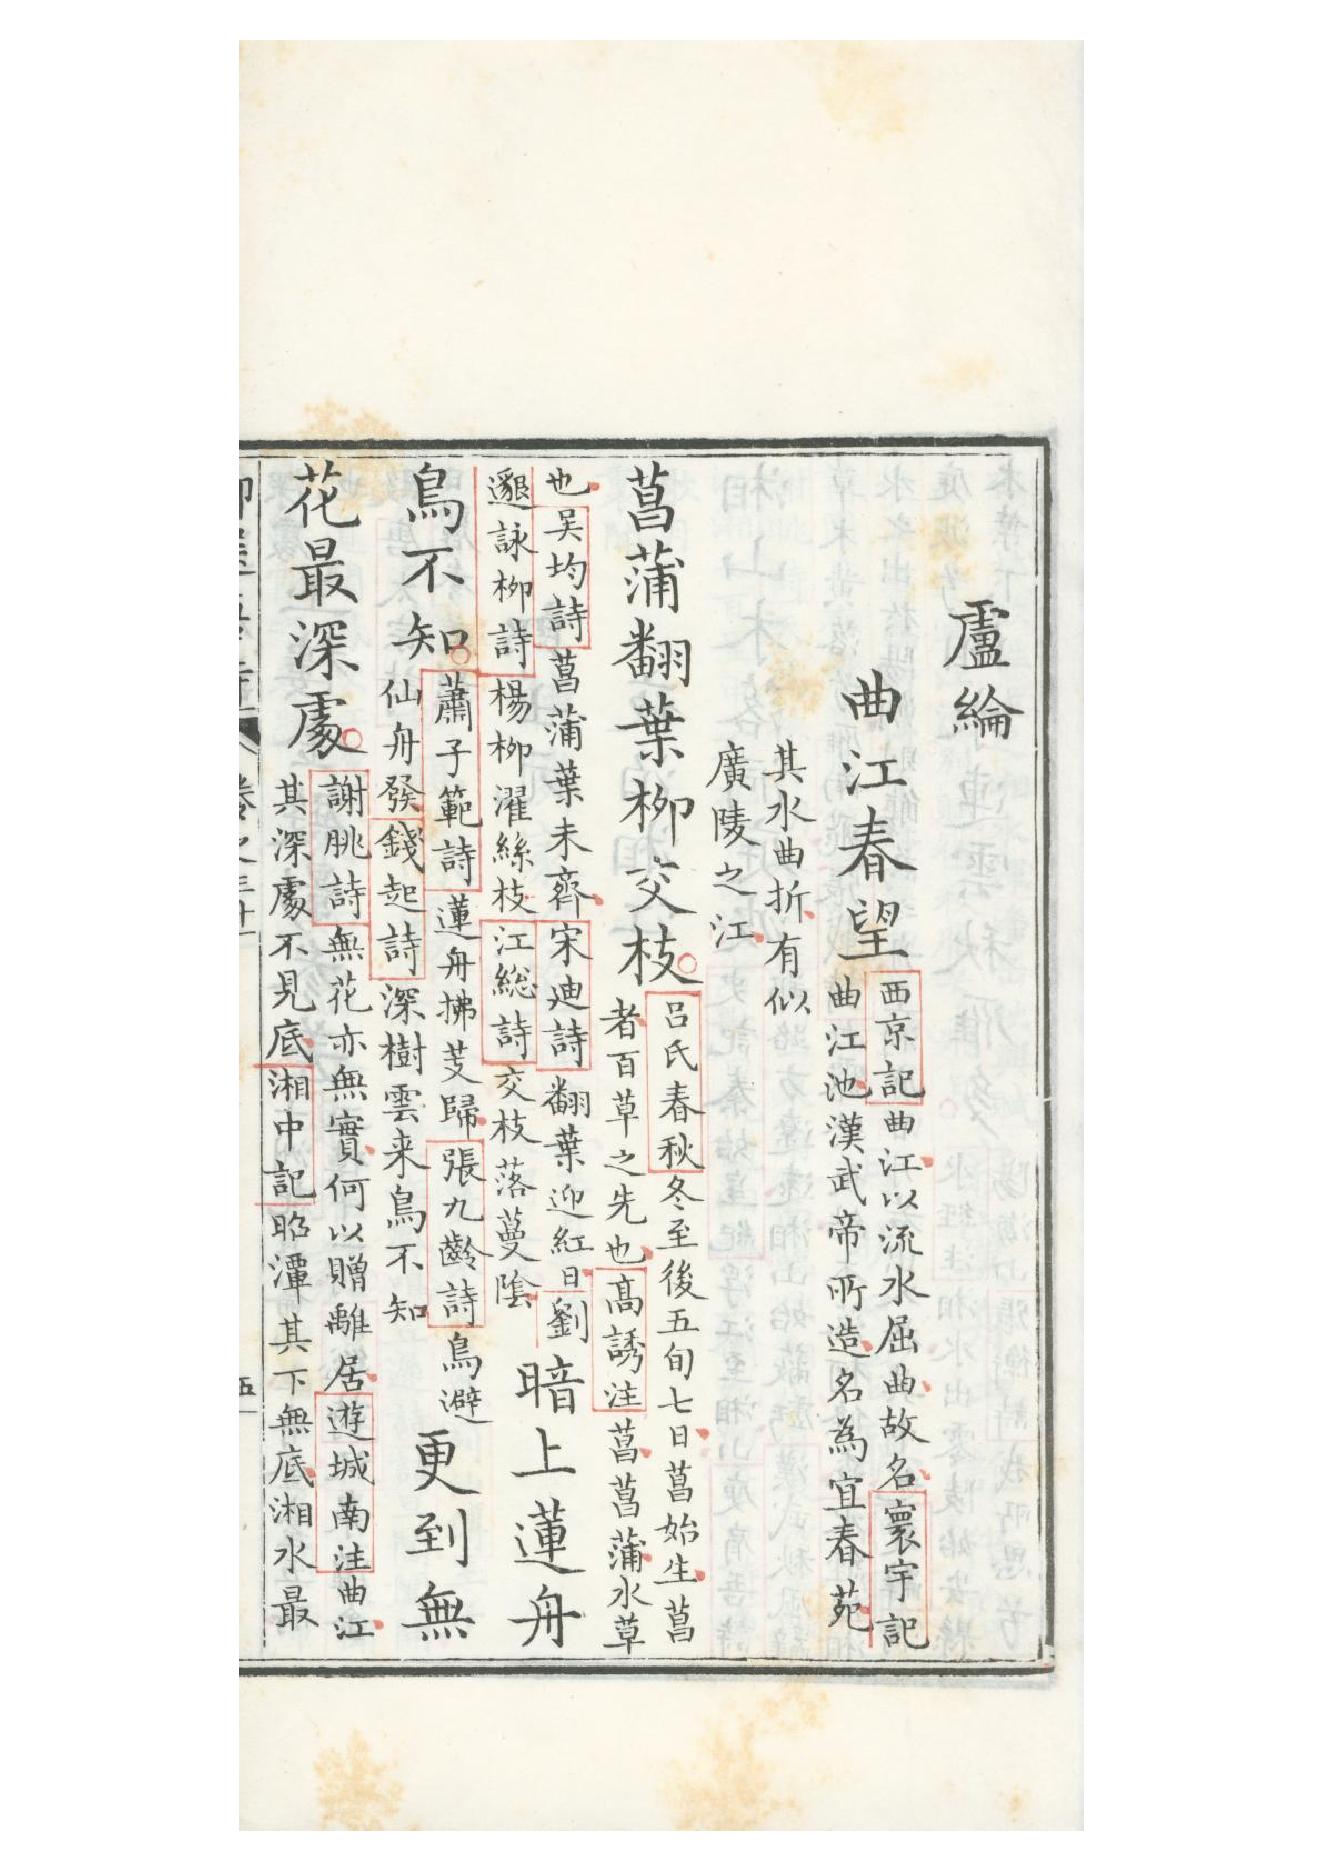 盧綸
曲江春望
西京記曲江以流水屈曲故名寰宇記
曲江池漢武帝所造名為宜春苑
其水曲折有似
廣陵之江
菖蒲翻葉柳交枝
呂氏春秋冬至後五旬七日菖始生菖
者百草之先也高誘注菖菖蒲水草
也吴均詩菖蒲葉未齊宋迪詩翻葉迎紅日劉
邈詠柳詩楊柳濯絲枝江総詩交枝落蔓陰
暗上蓮舟
鳥不知
蕭子範詩蓮舟拂芰歸張九齡詩鳥避
仙舟發錢起詩深樹雲来鳥不知
更到無
花最深處
謝朓詩無花亦無實何以贈離居遊城南注曲江
其深處不見底湘中記昭潭其下無底湘水最
卷之三十
五